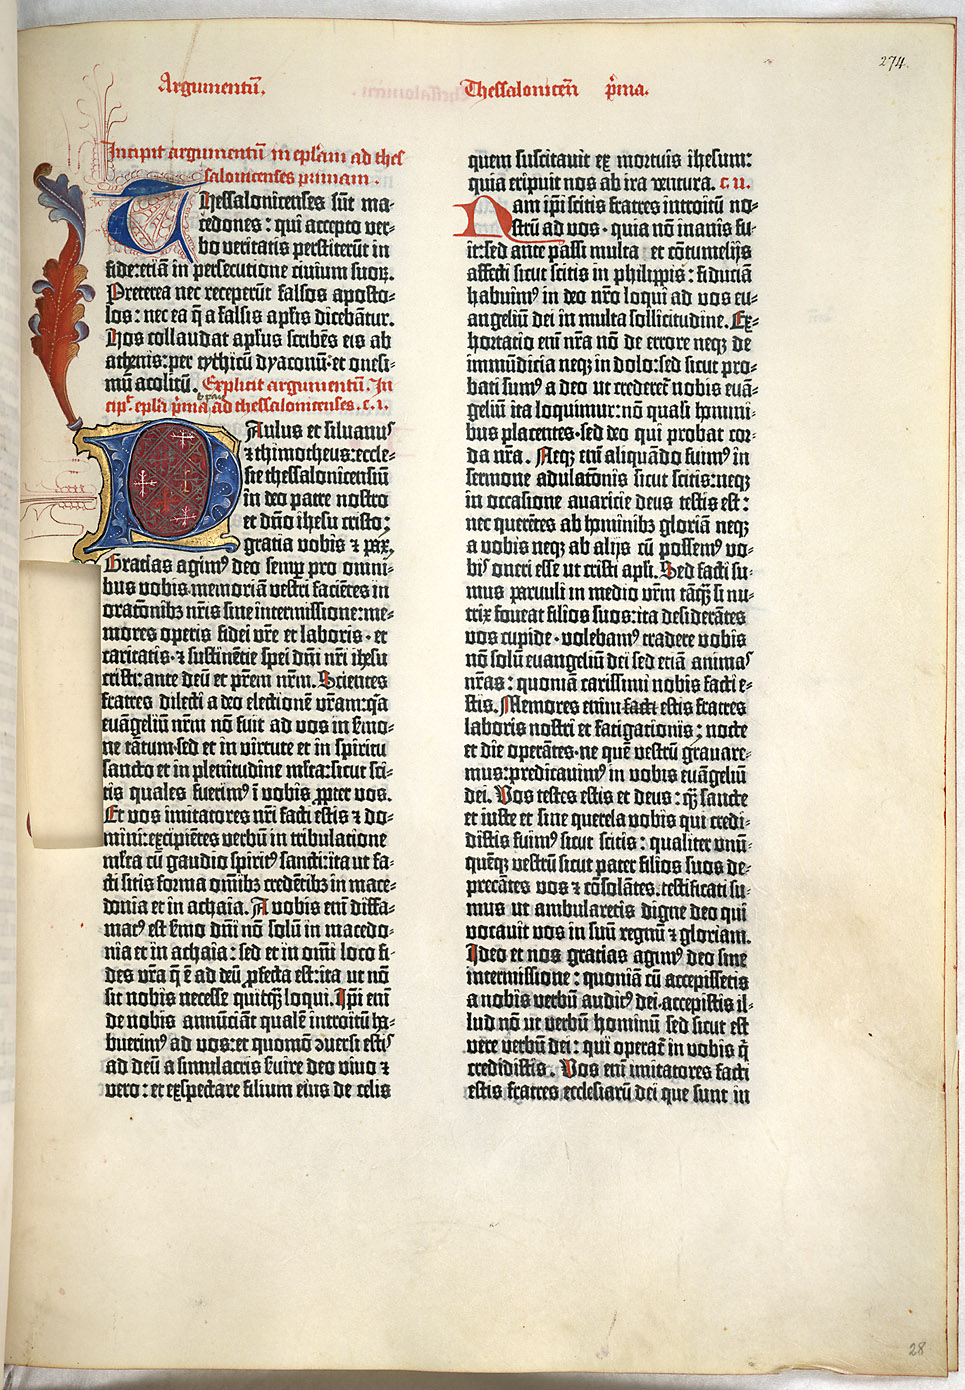 274.
Argumentū.
Thessalonicen̄ p̄ma.
Incipit argumentū in ep̄lam ad thes
salonicenses primam.
Thessalonicenses sūt ma-
cedones: qui accepto ver-
bo veritatis perstiterūt in
fide: etiā in persecutione civium suoꝝ.
Preterea nec receperūt falsos aposto-
los: nec ea q̄ a falsis ap̄lis dicebātur.
Hos collaudat ap̄lus scribēs eis ab
athenis: per tythicū dyaconū· et onesi-
mū acolitū. Explicit argumentū. In
cip̄t ep̄la p̄ma ad thessalonicenses. c. i.
b pauli
Paulus et siluanꝰ
⁊ thimotheus: eccle-
sie thessalonicensiū
in deo patre nostro
et dn̄o ihesu cristo:
gratia vobis ⁊ pax.
Gratias agimꝰ deo semꝑ pro omni-
bus vobis memoriā vestri faciētes in
orationibꝫ nr̄is sine intermissione: me-
mores operis fidei vr̄e et laboris· et
caritatis· ⁊ sustinētie spei dn̄i nr̄i ihesu
cristi: ante deū et pr̄em nr̄m. Scientes
fratres dilecti a deo electionē vr̄am: q̄a
euāgeliū nr̄m nō fuit ad vos in s̄mo-
ne tātum· sed et in virtute et in spiritu
sancto et in plenitudine ml̄ta: sicut sci-
tis quales fuerimꝰ ī vobis ꝓpter vos.
Et vos imitatores nr̄i facti estis ⁊ do-
mini: excipiētes verbū in tribulatione
ml̄ta cū gaudio spiritꝰ sancti: ita ut fa-
cti sitis forma om̄ibꝫ credētibꝫ in mace-
donia et in achaia. A vobis eni diffa-
matꝰ est s̄mo dn̄i nō solū in macedo-
nia et in achaia: sed et in om̄i loco fi-
des vr̄a q̄ ē ad deū ꝓfecta est: ita ut nō
sit nobis necesse quitq̄ȝ loqui. Ip̄i eni
de nobis annūciāt qualē introitū ha-
buerimꝰ ad vos: et quomō ↄuersi estiꝰ
ad deū a simulacris s̄uire deo vivo ⁊
vero: et exspectare filium eius de celis
quem suscitauit ex mortuis ihesum:
quia eripuit nos ab ira ventura. c. ii.
Nam ip̄i scitis fratres introitū no-
strū ad vos· quia nō inanis fu-
it: sed ante passi multa et cōtumelijs
affecti sicut scitis in philippis: fiduciā
habuimꝰ in deo nr̄o loqui ad vos eu-
angeliū dei in multa sollicitudine. Ex-
hortatio eni nr̄a nō de errore neqꝫ de
immūdicia neqꝫ in dolo: sed sicut pro-
bati sumꝰ a deo ut crederet̄ nobis euā-
geliū ita loquimur: nō quasi homini-
bus placentes· sed deo qui probat cor-
da nr̄a. Neqꝫ eni aliquādo fuimꝰ in
sermone adulatōnis sicut scitis: neqꝫ
in occasione avaricie deus testis est:
nec querētes ab hominibꝫ gloriā neqꝫ
a vobis neqꝫ ab alijs cū possemꝰ vo-
biꝰ oneri esse ut cristi ap̄li. Sed facti su-
mus paruuli in medio vr̄m tāq̄ȝ si nu-
trix foueat filios suos: ita desiderātes
vos cupide· volebamꝰ tradere vobis
nō solū euangeliū dei sed etiā animaꝰ
nr̄as: quoniā carissimi nobis facti e-
stis. Memores enim facti estis fratres
laboris nostri et fatigationis: nocte
et die operātes· ne quē vestrū grauare-
mus: predicauimꝰ in vobis euāgeliū
dei. Vos testes estis et deus: q̄ȝ sancte
et iuste et sine querela vobis qui credi-
distis fuimꝰ sicut scitis: qualiter vnū-
quēqꝫ vestrū sicut pater filios suos de-
precātes vos ⁊ cōsolātes· testificati su-
mus ut ambularetis digne deo qui
vocauit vos in suū regnū ⁊ gloriam.
Ideo et nos gratias agimꝰ deo sine
intermissione: quoniā cū accepissetis
a nobis verbū auditꝰ dei· accepistis il-
lud nō ut verbū hominū sed sicut est
vere verbū dei: qui operat̄ in vobis q̄
credidistis. Vos eni imitatores facti
estis fratres ecclesiarū dei que sunt in
28